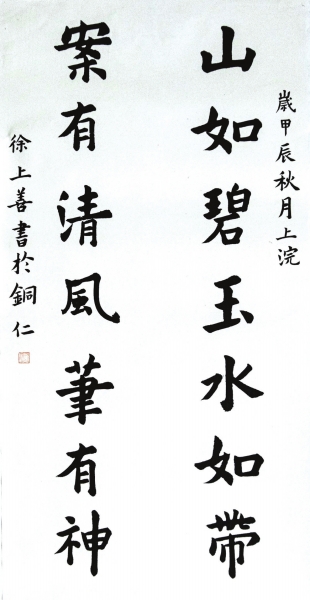 歲甲辰秋月上浣
山如碧玉水如帶
案有清風筆有神
徐上善書於銅仁